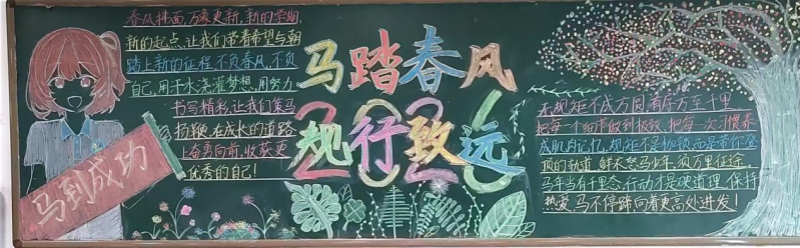 春风拂面,万象更新,新的学期,
新的起点,让我们带着希望与朝
踏上新的征程,不负春风,不负
自己,用汗水浇灌梦想,用努力
书写精彩,让我们策马
扬鞭,在成长的道路
上奋勇向前,收获更
优秀的自己!
马到成功
马踏春风
2026
规行致远
无规矩不成方圆,有斤方至千里
把每一个细节做到极致,把每一次习惯养
成肌肉记忆,规矩不是枷锁而是带你登
顶的轨道,鲜衣怒马少年,须万里征途
马年当有千里志,行动才是硬道理,保持
热爱,马不停蹄向着更高处进发!